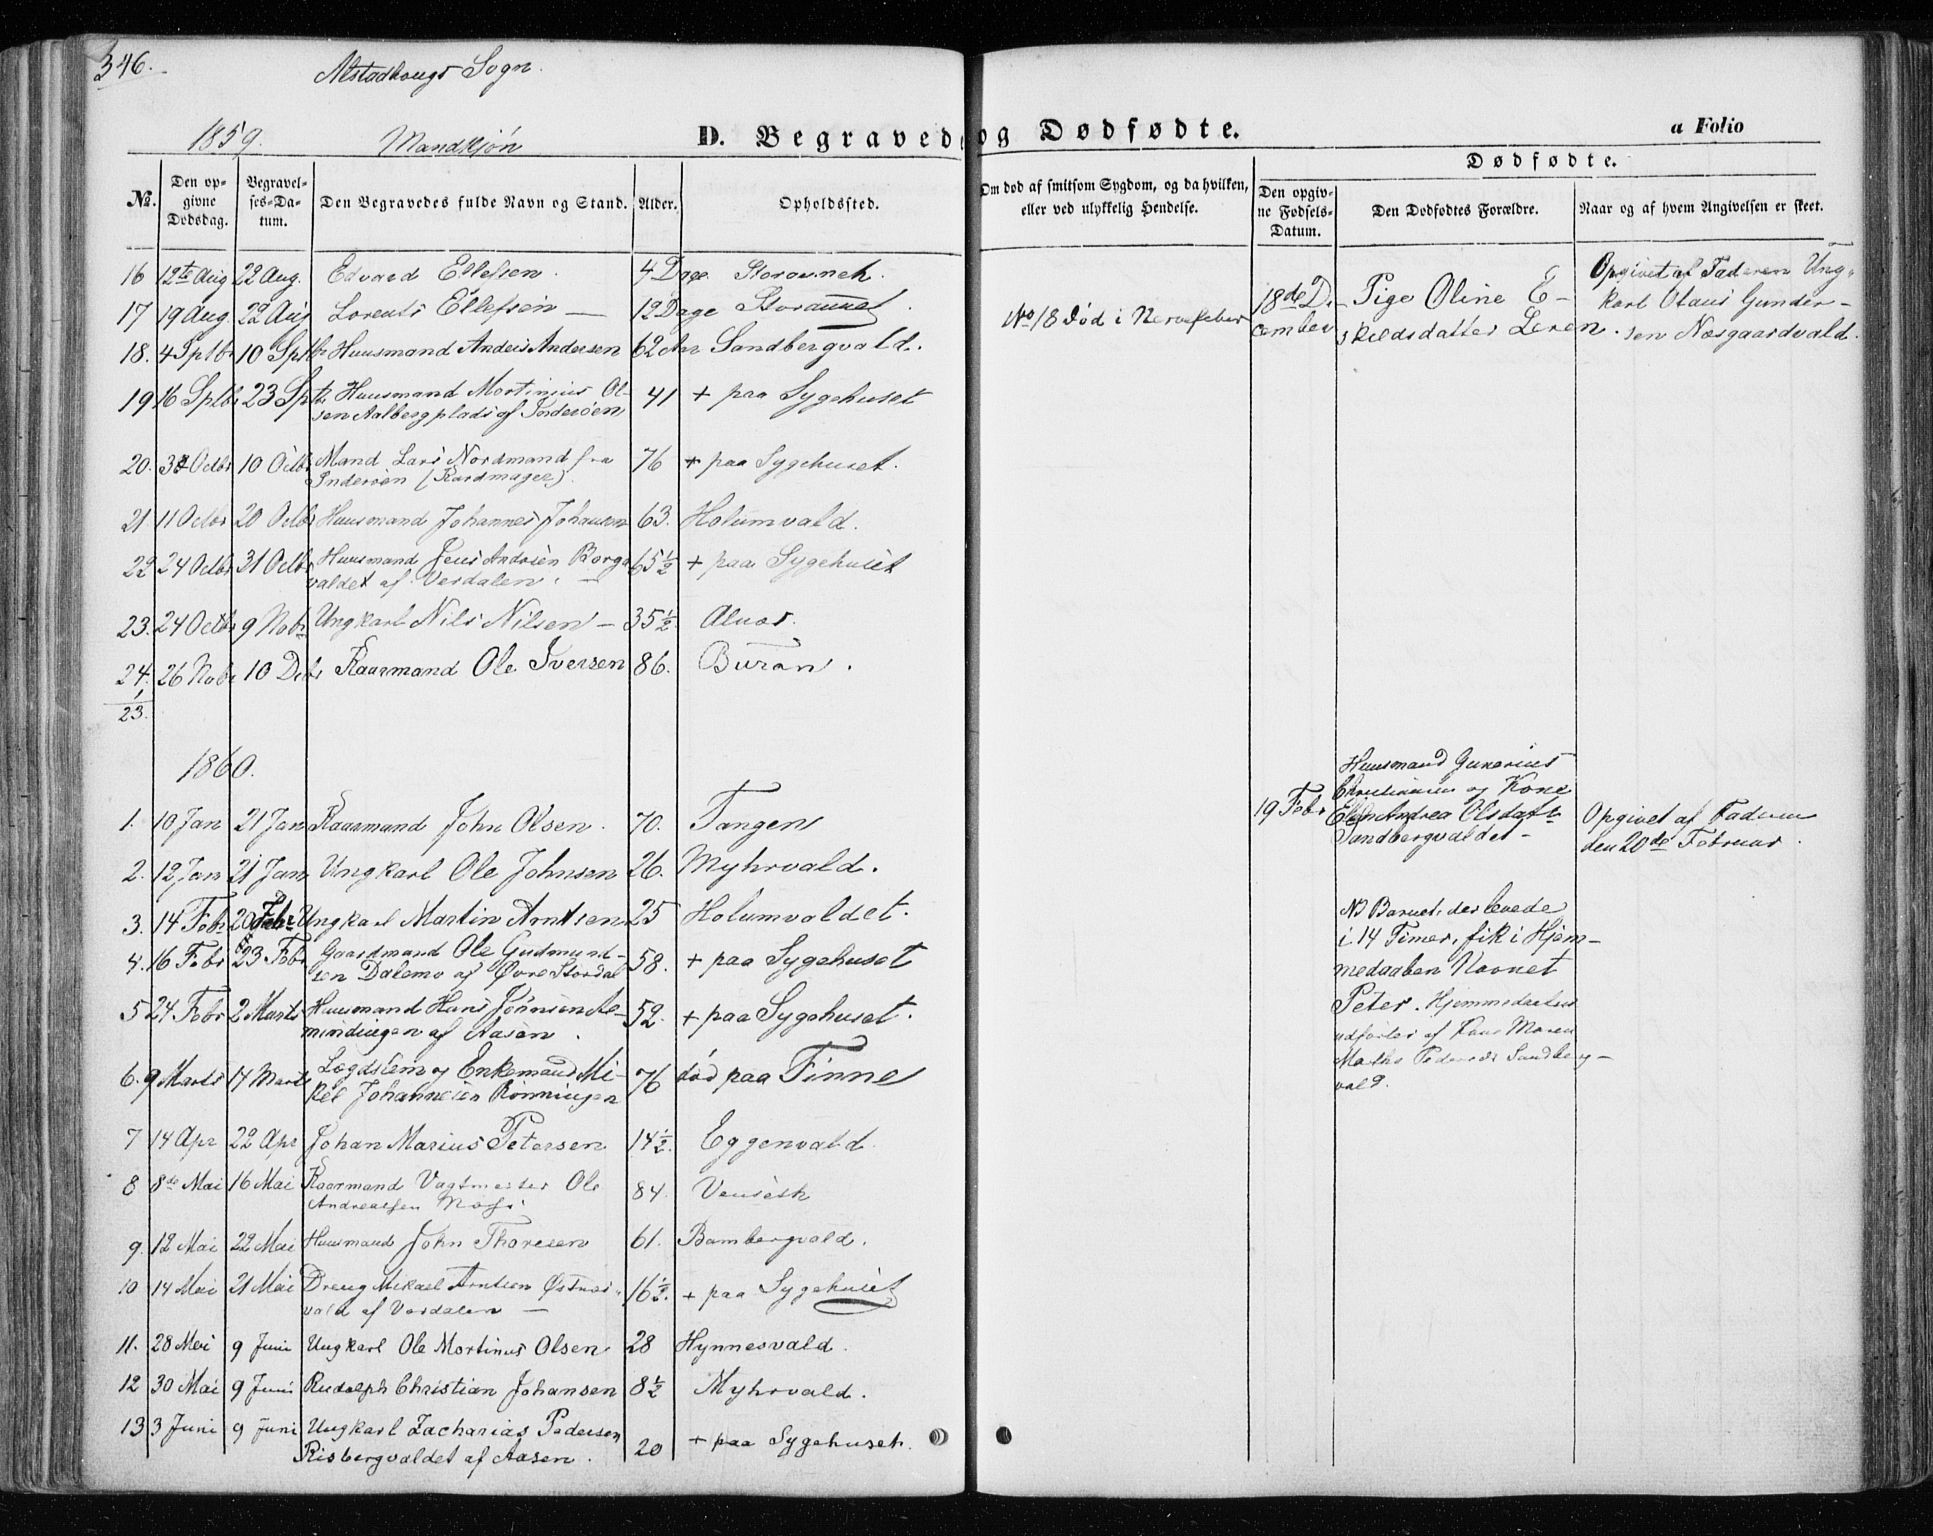 346.
Alstadhougs Sogn.
1859. Mandkjøn
D. Begravede og Dødfødte.
a Folio
No. Den opgivne Dødsdag. Begravelses-Datum. Den Begravedes fulde Navn og Stand. Alder. Opholdssted.
Om død af smitsom Sygdom, og da hvilken, eller ved ulykkelig Hendelse.
Dødfødte.
Den opgivne Fødsels-Datum. Den Dødfødtes Forældre. Naar og af hvem Angivelsen er skeet.
16 12te Aug 22 Aug. Edvard Ellefsen. 4 Dage
17 19 Aug 22 Aug Lorents Ellefsen — 12 Dage
18. 4 Sptbr 10 Sptbr Huusmand Anders Andersen 62 Aar Sandbergvald.
19 16 Sptbr 23 Sptbr Huusmand Mortinius Ol-
sen Aalberg plads af
41 + paa Sygehuset
20. Octbr 10 Octbr Mand Lars Nordmand fra
Inderøen (Kardmager).
76 + paa Sygehuset.
21. 11 Octbr 20 Octbr Huusmand Johannes Johansen 63. Holumvald.
22 24 Octbr 31 Octbr Huusmand Jens Andrsen Borgs
valdet af Verdalen. —
65½ + paa Sygehuset
23. 24 Octbr 9 Nobr Ungkarl Nils Nilsen — 35½
24. 26 Nobr 10 Debr Kaarmand Ole Iversen 86. Buran.
1
23.
No 18 død i Nervefeber
18de De-
cember
Pige Oline E-
skildsdatter Leren.
Opgivet af Faderen Ung-
karl Olaus Gunder-
sen Næsgaardvald.
1860.
1. 10 Jan 21 Jan Kaarmand John Olsen. 70. Tangen
2. 12 Jan 21 Jan Ungkarl Ole Johnsen 26. Myhrvald.
3. 14 Febr 20 Febr Ungkarl Martin Arntsen 25 Holumvaldet.
4. 16 Febr 23 Febr Gaardmand Ole Gudmund-
sen Dalemo af Øvre Stordal
58. + paa Sygehuset
5 24 Febr 2 Marts Huusmand Hans Jønsen
af Aasen.
52. + paa Sygehuset.
6. 9 Marts 17 Marts Lægdslem og Enkemand Mi-
kel Johannesen Rønningen
76 død paa Finne
7 14 Apr 22 Apr Johan Marius Petersen 14½. Eggenvald
8 8de Mai 16 Mai Kaarmand Vagtmester Ole
Andreassen
84.
9. 12 Mai 22 Mai Huusmand John Thoresen 61. Bambergvald.
10 14 Mai 21 Mai Dreng Mikael Arntsen
vald af Verdalen —
16½. + paa Sygehuset
11. 28 Mai 9 Juni Ungkarl Ole Mortinus Olsen 28 Hynnesvald.
12 30 Mai 9 Juni Rudolph Christian Johansen 8½ Myhrvald.
13 3 Juni 9 Juni Ungkarl Zacharias Pedersen
Risbergvaldet af Aasen.
20 + paa Sygehuset.
19 Febr
Huusmand
og Kone
Andrea Olsdatr
Sandbergvaldet —
Opgivet af Faderen
den 20de Februar.
NB Barnet, der levede
i 14 Timer, fik i Hjem-
medaaben Navnet
Peter. Hjemmedaaben
udførtes af Kone Maren
Sandberg-
vald.